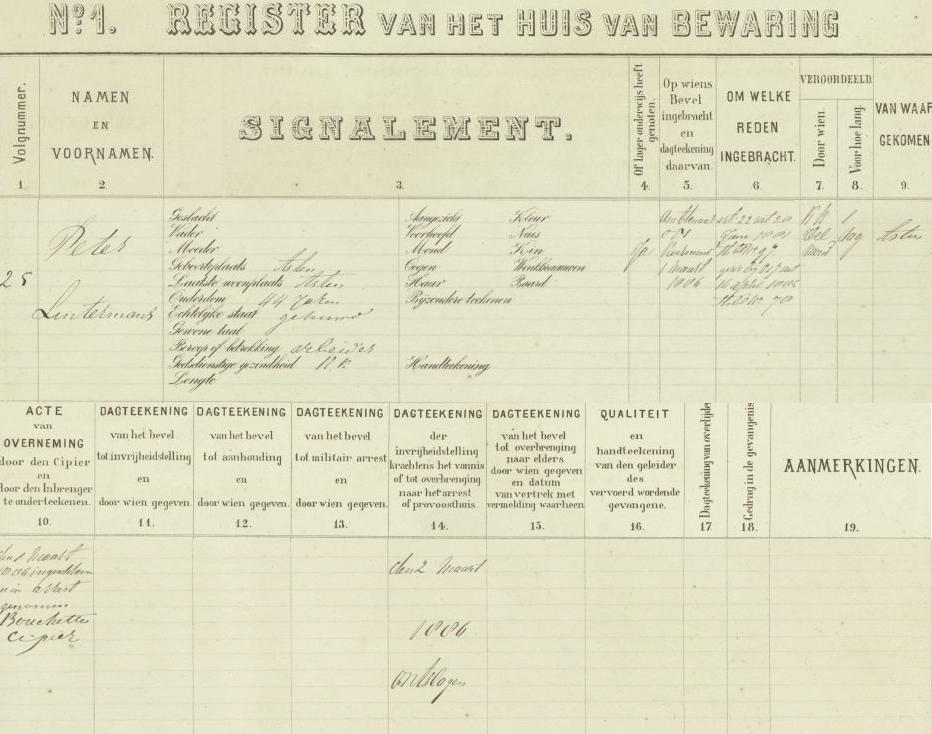 Nº1. REGISTER VAN HET HUIS VAN BEWARING
Volgnummer.
1.
NAMEN
EN
VOORNAMEN.
2.
SIGNALEMENT.
3.
Of lager onderwijs heeft
genoten.
4.
Op wiens
Bevel
ingebracht
en
dagteekening
daarvan.
5.
OM WELKE
REDEN
INGEBRACHT.
6.
VEROORDEELD.
Door wien.
7.
Voor hoe lang.
8.
VAN WAAR
GEKOMEN
9.
25
Peter
Lintermans
Geslacht
Vader
Moeder
Geboorteplaats Asten
Laatste woonplaats Asten
Ouderdom 44 Jaren
Echtelijke staat gehuwd
Gewone taal
Beroep of betrekking arbeider
Godsdienstige gezindheid R.K.
Lengte
Aangezicht Kleur
Voorhoofd Neus
Mond Kin
Oogen Wenkbrauwen
Haar Baard
Bijzondere teekenen
Handteekening
Ja
1 Maart
1886
1
dag
Asten
ACTE
van
OVERNEMING
door den Cipier
en
door den Inbrenger
te onderteekenen.
10.
DAGTEEKENING
van het bevel
tot invrijheidstelling
en
door wien gegeven.
11.
DAGTEEKENING
van het bevel
tot aanhouding
en
door wien gegeven.
12.
DAGTEEKENING
van het bevel
tot militair arrest
en
door wien gegeven.
13.
DAGTEEKENING
der
invrijheidstelling
krachtens het vonnis
of tot overbrenging
naar het arrest
of provoosthuis.
14.
DAGTEEKENING
van het bevel
tot overbrenging
naar elders
door wien gegeven
en datum
van vertrek met
vermelding waarheen
15.
QUALITEIT
en
handteekening
van den geleider
des
vervoerd wordende
gevangene.
16.
Dagteekening van overlijden
17
Gedrag in de gevangenis
18.
AANMERKINGEN.
19.
den 1 Maart
1886 ingeschreven
en in arrest
genomen
Bouchette
Cipier
den 2 Maart
1886
ontslagen